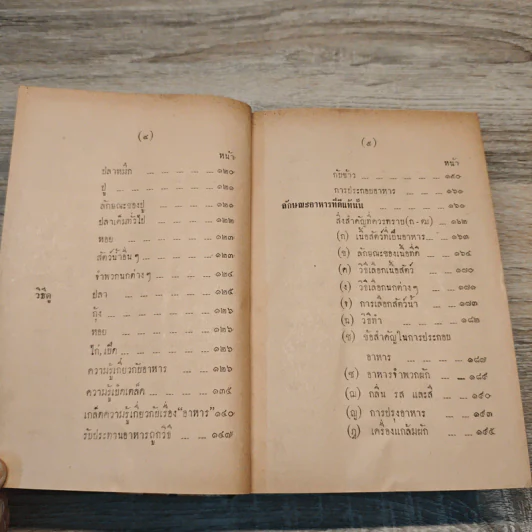 (๔)
หน้า
ปลาหมึก ... ... ... ... ๑๒๐
ปู ... ... ... ... ๑๒๑
ลักษณะของปู ... ... ... ๑๒๑
ปลาเค็มทั่วไป ... ... ... ๑๒๒
หอย ... ... ... ... ๑๒๓
สัตว์น้ำอื่นๆ ... ... ... ๑๒๓
จำพวกนกต่างๆ ... ... ... ๑๒๔
วิธีดู ปลา ... ... ... ... ๑๒๕
กุ้ง ... ... ... ... ๑๒๖
หอย ... ... ... ... ๑๒๖
ไก่, เป็ด ... ... ... ๑๒๖
ความรู้เกี่ยวกับอาหาร ... ... ๑๒๖
ความรู้เบ็ดเตล็ด ... ... ๑๓๕
เกล็ดความรู้เกี่ยวกับเรื่อง "อาหาร" ๑๔๐
รับประทานอาหารถูกวิธี ... ... ๑๔๗
(๕)
หน้า
กับข้าว ... ... ... ... ๑๕๐
การประกอบอาหาร ... ... ... ๑๖๐
ลักษณะอาหารที่ดีแท้นั้น ... ... ... ๑๖๑
สิ่งสำคัญที่ควรทราบ(ก-ฒ) ... ๑๖๒
(ก) เนื้อสัตว์ที่เป็นอาหาร ... ๑๖๓
(ข) ลักษณะของเนื้อที่ดี ... ๑๖๕
(ค) วิธีเลือกเนื้อสัตว์ ... ๑๗๐
(ง) วิธีเลือกนกต่างๆ ... ... ๑๗๑
(จ) การเลือกสัตว์น้ำ ... ... ๑๗๓
(ฉ) วิธีทำ ... ... ... ๑๘๒
(ช) ข้อสำคัญในการประกอบ
อาหาร ... ... ... ๑๘๗
(ซ) อาหารจำพวกผัก ... ... ๑๘๙
(ฌ) กลิ่น รส และสี ... ...
(ญ) การปรุงอาหาร ... ... ๑๙๓
(ฎ) เครื่องแกล้มผัก ... ... ๑๙๕